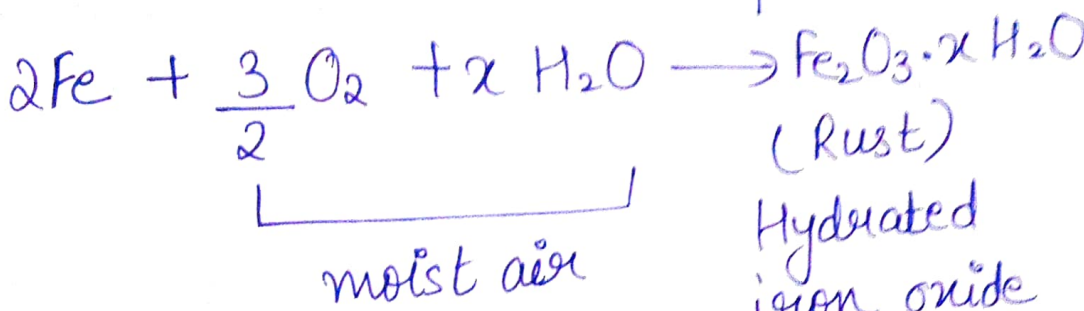 2Fe + 3/2 O₂ + x H₂O → Fe₂O₃·x H₂O
(Rust)
moist air
Hydrated
iron oxide